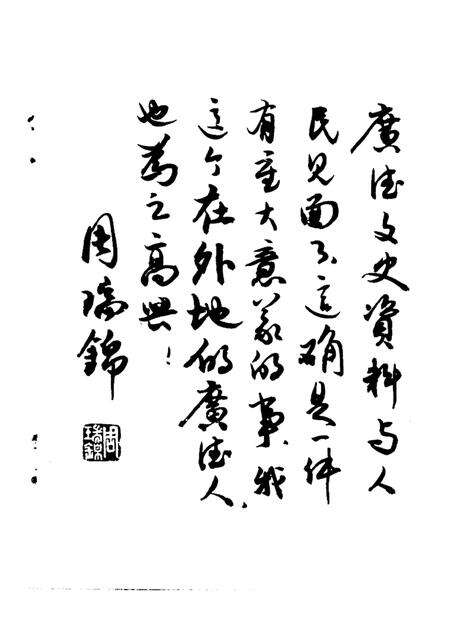 廣德文史資料与人
民見面了，这確是一件
有重大意義的事，我
这个在外地的廣德人，
也為之高興！
周瑞錦